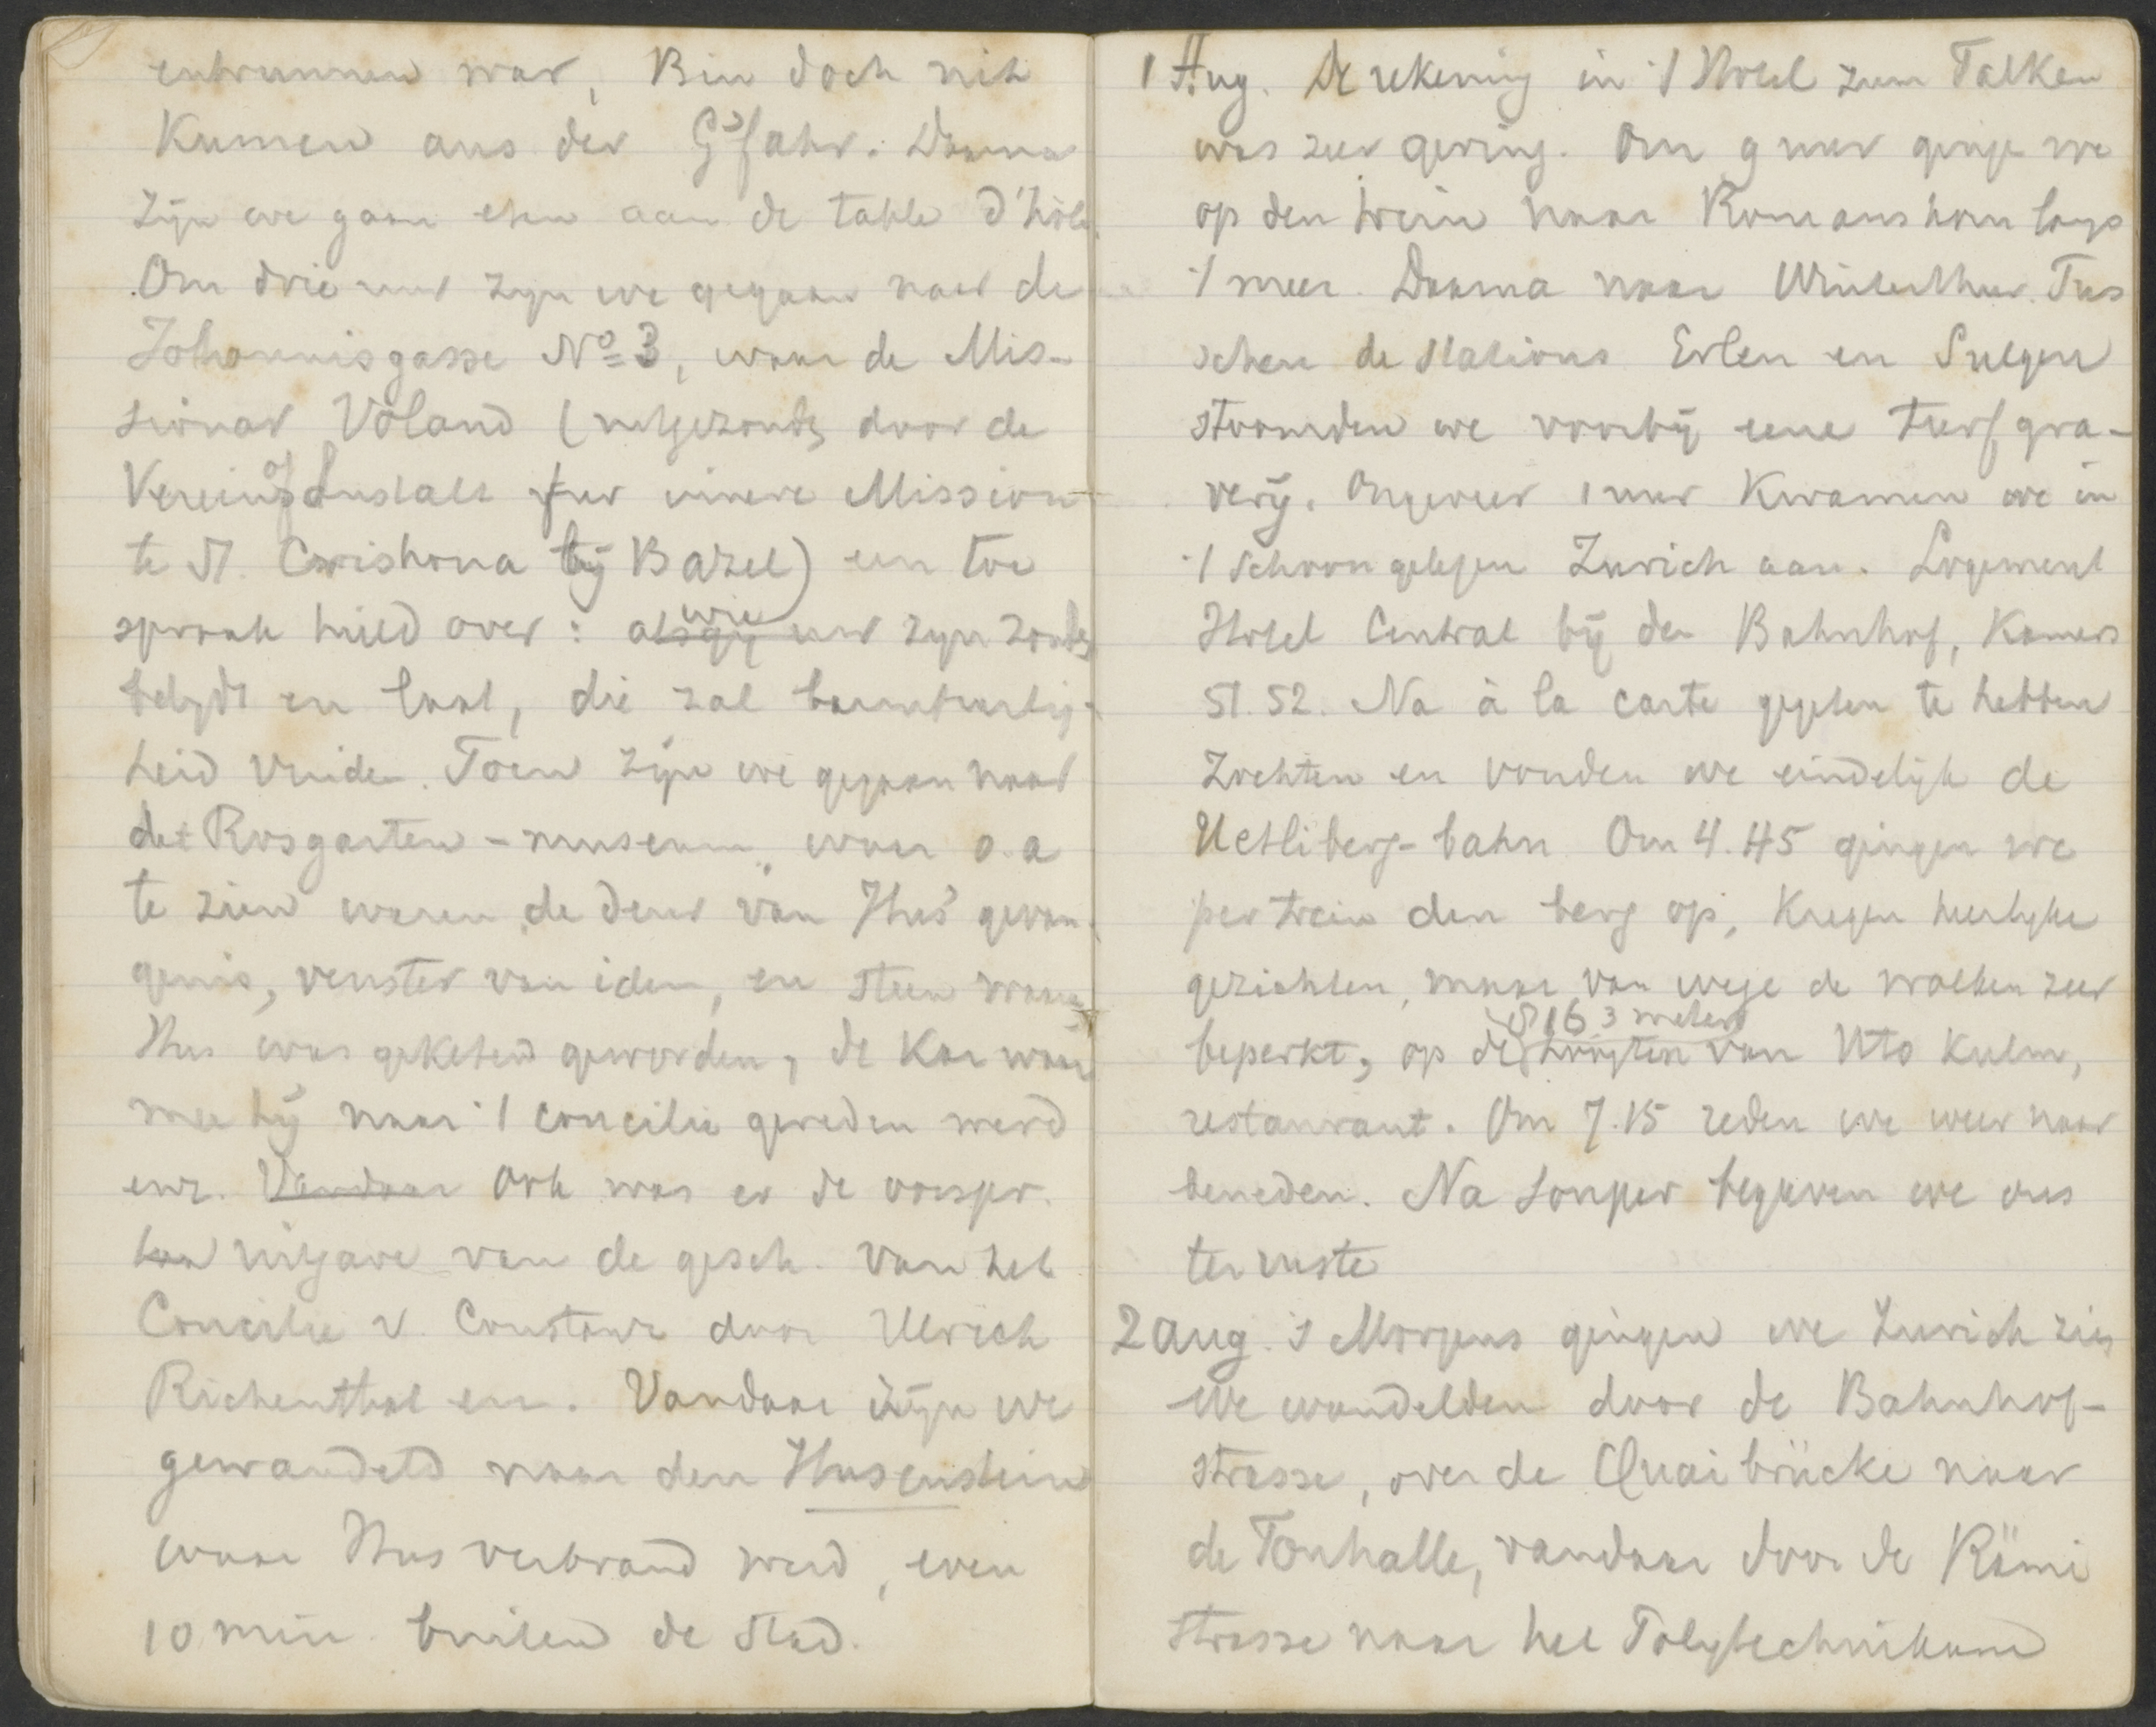 entrunnen war, Bin doch nit
Kumen aus der G'fahr. Daarna
zijn we gaan eten aan de table d'hôte.
Om drie uur zijn we gegaan naar de
Johannisgasse No 3, waar de Mis-
sionar Voland (uitgezonden door de
Verein of Anstalt fur innere Mission
te St. Crrishona bij Bazel) een toe
spraak hield over: alsgij wie uw zijn zonden
belijdt en laat, die zal barmhartig-
heid vinden. Toen zijn we gegaan naar
det Rosgarten-museum, waar o.a
te zien waren de deur van Hus' gevan-
genis, venster van idem, en steen waaraan
Hus was geketend geworden, de Kar waar
mee hij naar 't concilie gereden werd
enz. Vandaar Ook was er de oorspr.
uitgave van de gesch. van het
Concilie v. Constanz door Ulrich
Richenthal enz. Vandaar zijn we
gewandeld naar den Husenstein
waar Hus verbrand werd, even
10 min. buiten de Stad.
1 Aug. De rekening in 't Hotel zum Falken
was zeer gering. Om 9 uur ginge we
op den trein naar Romanshorn langs
't meer. Daarna naar Winterthur. Tus
schen de stations Erlen en Sulgen
stoomden we voorbij eene turfgra-
verij. Ongeveer 1 uur Kwamen we in
't schoon gelegen Zurich aan. Logement
Hotel Central bij den Bahnhof, Kamers
51. 52. Na à la carte gegeten te hebben
Zochten en vonden we eindelijk de
Uetliberg-bahn Om 4.45 gingen we
per trein den berg op, Kregen heerlijke
gezichten, maar van wege de wolken zeer
beperkt, op de 816.3 meter hoogten van Uto Kulm,
restaurant. Om 7.15 reden we weer naar
beneden. Na souper begaven we ons
ter ruste
2 aug. 's Morgens gingen we Zurich zien
We wandelden door de Bahnhof-
strasse, over de Quaibrücke naar
de Tonhalle, vandaar door de Rämi
strasse naar het Polytechnikum